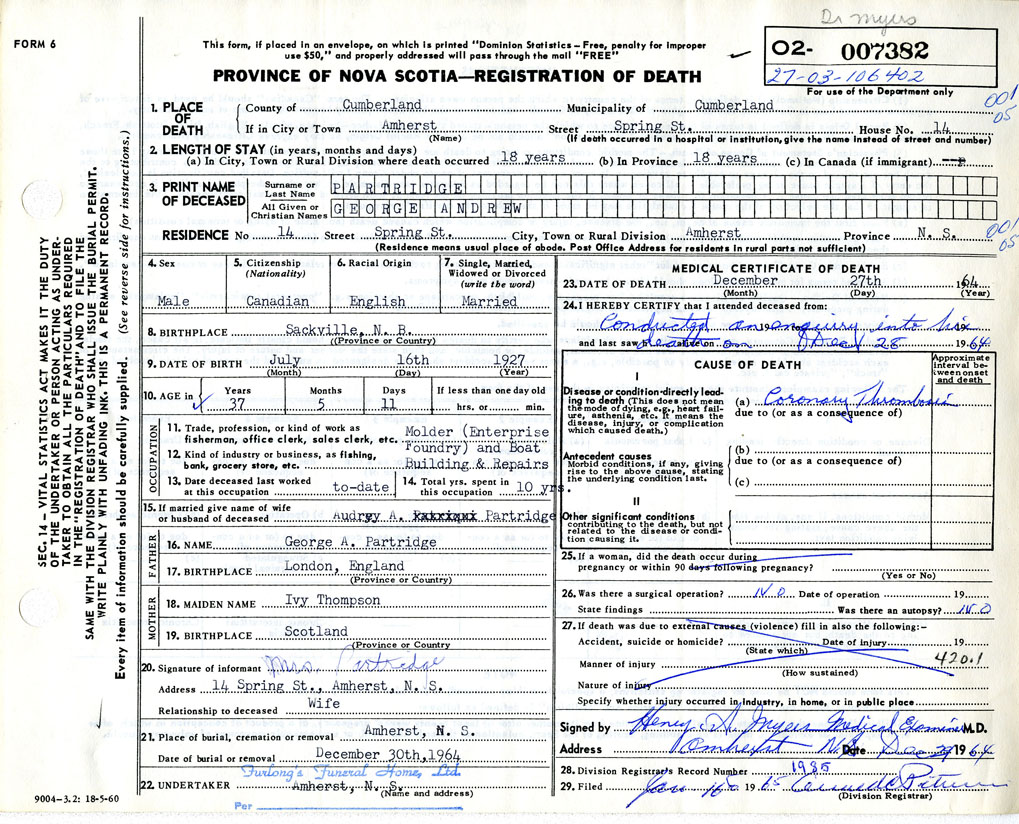 Dr Myers
FORM 6
This form, if placed in an envelope, on which is printed "Dominion Statistics – Free, penalty for improper
use $50," and properly addressed will pass through the mail "FREE"
O2- 007382
27-03-106402
For use of the Department only
PROVINCE OF NOVA SCOTIA—REGISTRATION OF DEATH
001
05
1. PLACE OF DEATH
County of Cumberland Municipality of Cumberland
If in City or Town Amherst Street Spring St. House No. 14
(Name) (If death occurred in a hospital or institution, give the name instead of street and number)
2. LENGTH OF STAY (in years, months and days)
(a) In City, Town or Rural Division where death occurred 18 years (b) In Province 18 years (c) In Canada (if immigrant)
3. PRINT NAME OF DECEASED
Surname or Last Name PARTRIDGE
All Given or Christian Names GEORGE ANDREW
RESIDENCE No 14 Street Spring St. City, Town or Rural Division Amherst Province N. S.
(Residence means usual place of abode. Post Office Address for residents in rural parts not sufficient)
001
05
4. Sex
Male
5. Citizenship
(Nationality)
Canadian
6. Racial Origin
English
7. Single, Married, Widowed or Divorced
(write the word)
Married
8. BIRTHPLACE Sackville, N. B.
(Province or Country)
9. DATE OF BIRTH July 16th 1927
(Month) (Day) (Year)
10. AGE in Years Months Days If less than one day old
37 5 11 hrs. or min.
OCCUPATION
11. Trade, profession, or kind of work as
fisherman, office clerk, sales clerk, etc. Molder (Enterprise
12. Kind of industry or business, as fishing, Foundry) and Boat
bank, grocery store, etc. Building & Repairs
13. Date deceased last worked
at this occupation to-date
14. Total yrs. spent in
this occupation 10 yrs.
15. If married give name of wife
or husband of deceased Audrey A. Partridge
FATHER
16. NAME George A. Partridge
17. BIRTHPLACE London, England
(Province or Country)
MOTHER
18. MAIDEN NAME Ivy Thompson
19. BIRTHPLACE Scotland
(Province or Country)
20. Signature of informant Mrs. Partridge
Address 14 Spring St., Amherst, N. S.
Relationship to deceased Wife
21. Place of burial, cremation or removal Amherst, N. S.
Date of burial or removal December 30th, 1964
Furlong's Funeral Home, Ltd.
22. UNDERTAKER Amherst, N. S.
(Name and address)
Per
9004—3.2: 18-5-60
MEDICAL CERTIFICATE OF DEATH
23. DATE OF DEATH December 27th 1964
(Month) (Day) (Year)
24. I HEREBY CERTIFY that I attended deceased from:
Conducted an enquiry into his 19 19
and last saw h alive on death on Dec 28 1964
CAUSE OF DEATH
Approximate interval between onset and death
I
Disease or condition directly leading to death (This does not mean the mode of dying, e.g., heart failure, asthenia, etc. It means the disease, injury, or complication which caused death.)
(a) Coronary Thrombosis
due to (or as a consequence of)
Antecedent causes
Morbid conditions, if any, giving rise to the above cause, stating the underlying condition last.
(b)
due to (or as a consequence of)
(c)
II
Other significant conditions
contributing to the death, but not related to the disease or condition causing it.
25. If a woman, did the death occur during
pregnancy or within 90 days following pregnancy?
(Yes or No)
26. Was there a surgical operation? NO Date of operation 19
State findings Was there an autopsy? NO
27. If death was due to external causes (violence) fill in also the following:–
Accident, suicide or homicide? Date of injury 19
(State which)
Manner of injury 420.1
(How sustained)
Nature of injury
Specify whether injury occurred in industry, in home, or in public place
Signed by Henry S. Myers Medical Examiner M.D.
Address Amherst N.S. Date Dec 29 1964
28. Division Registrar's Record Number 1985
29. Filed Jan 16 1965
(Division Registrar)
SEC. 14 – VITAL STATISTICS ACT MAKES IT THE DUTY
OF THE UNDERTAKER OR PERSON ACTING AS UNDER-
TAKER TO OBTAIN ALL THE PARTICULARS REQUIRED
IN THE "REGISTRATION OF DEATH" AND TO FILE THE
SAME WITH THE DIVISION REGISTRAR WHO SHALL ISSUE THE BURIAL PERMIT.
WRITE PLAINLY WITH UNFADING INK. THIS IS A PERMANENT RECORD.
Every item of information should be carefully supplied. (See reverse side for instructions.)